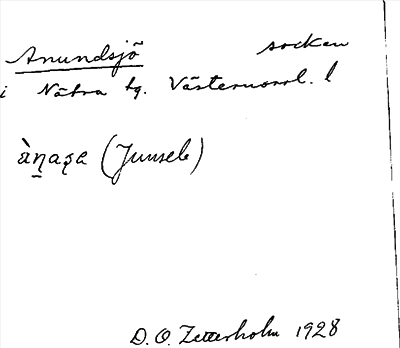 Anundsjö socken
i Nätra tg. Västernorrl. l
(Junsele)
D. O. Zetterholm 1928